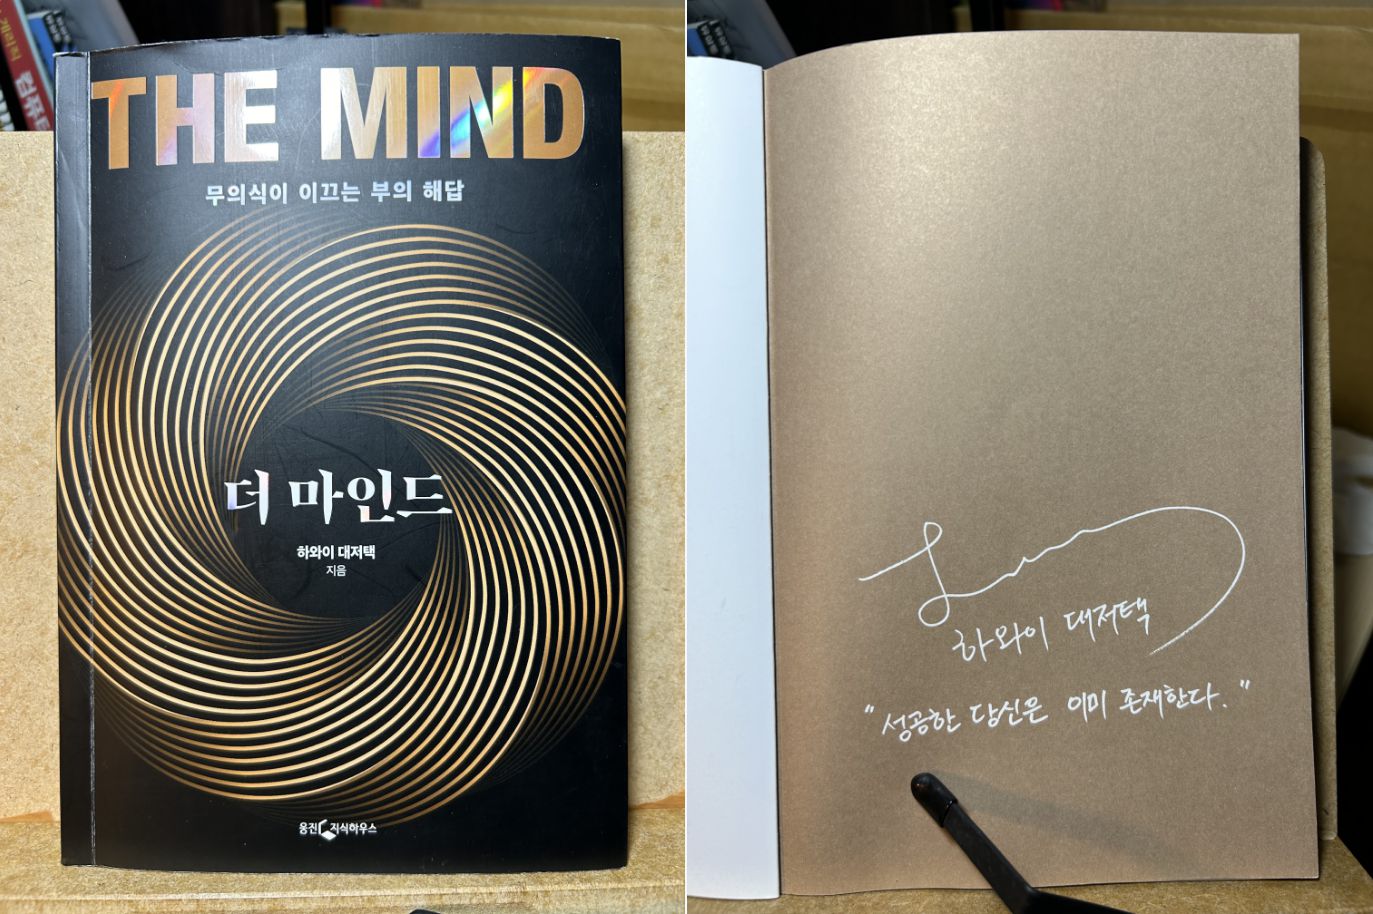 THE MIND
무의식이 이끄는 부의 해답
더 마인드
하와이 대저택
지음
웅진 지식하우스
하와이 대저택
"성공한 당신은 이미 존재한다."